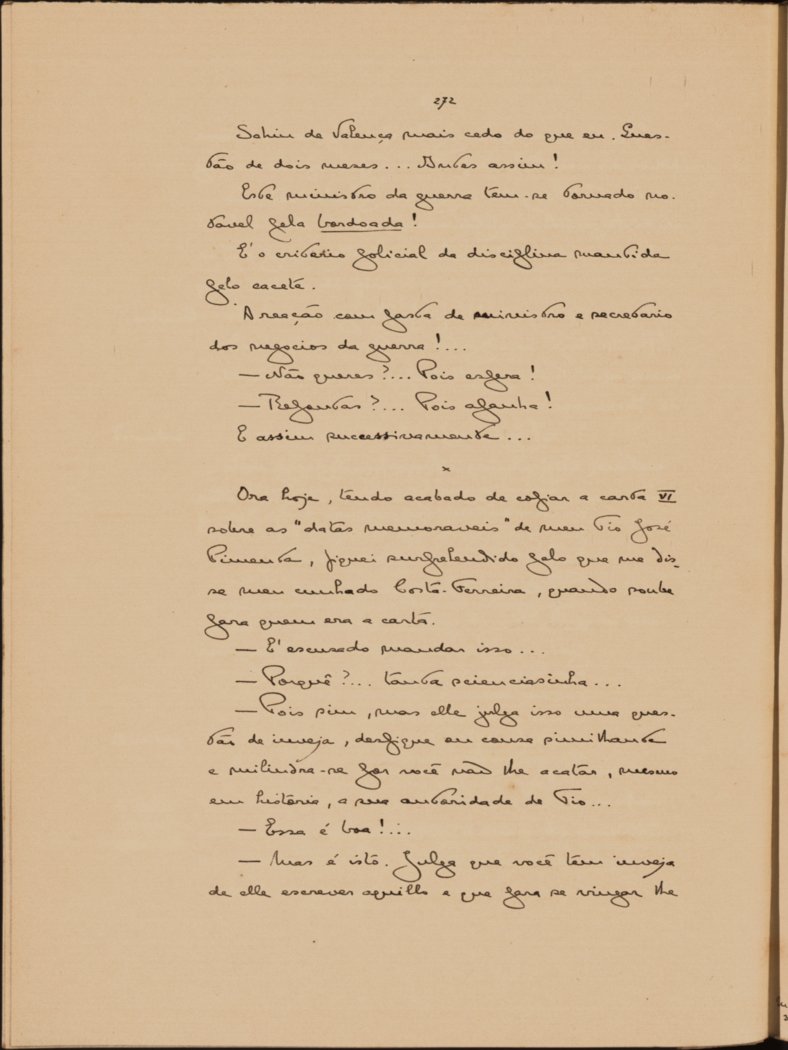 272
Sahiu de Valença mais cedo do que eu. Ques-
tão de dois meses... Antes assim!
Este ministro da guerra tem-se tornado no-
tavel pela bordoada!
É o criterio policial da disciplina mantida
pelo cacete.
A reação com pasta de ministro e secretario
dos negocios da guerra!...
— Não queres?... Pois espera!
— Refontas?... Pois apanha!
E assim successivamente...
×
Ora hoje, tendo acabado de copiar a carta VI
sobre as "datas memoraveis" de meu tio José
Pimenta, fiquei surprehendido pelo que me dis-
se meu cunhado Costa-Ferreira, quando soube
para quem era a carta.
— É escusado mandar isso...
— Porquê?... tanta scienciasinha...
— Pois sim, mas elle julga isso uma ques-
tão de inveja, despique ou cousa similhante
e milindra-se por você não lhe acatar, mesmo
em historia, a sua autoridade de Tio...
— Essa é boa!...
— Mas é isto. Julga que você tem inveja
de elle escrever aquillo e que para se vingar lhe